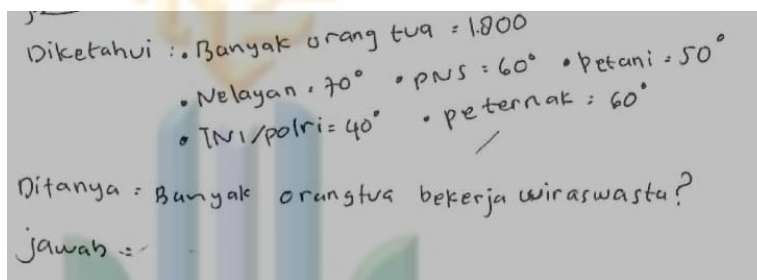 Diketahui : • Banyak orang tua = 1.800
• Nelayan = 70° • PNS = 60° • Petani = 50°
• TNI/polri = 40° • peternak = 60°
Ditanya = Banyak orangtua bekerja wiraswasta?
jawab =